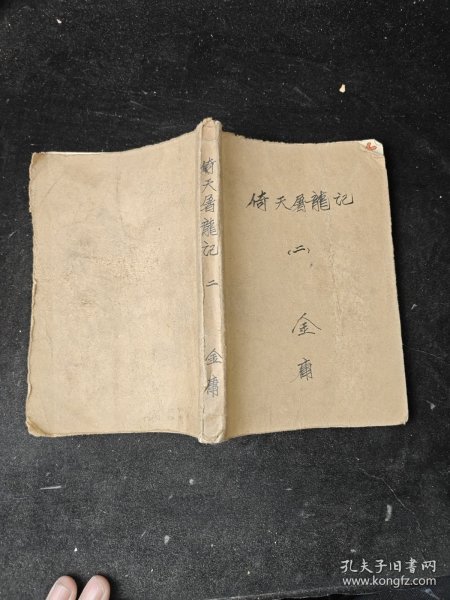 倚天屠龍記
二
金庸
倚天屠龍记
（二）
金
庸
孔夫子旧书网
www.kongfz.com